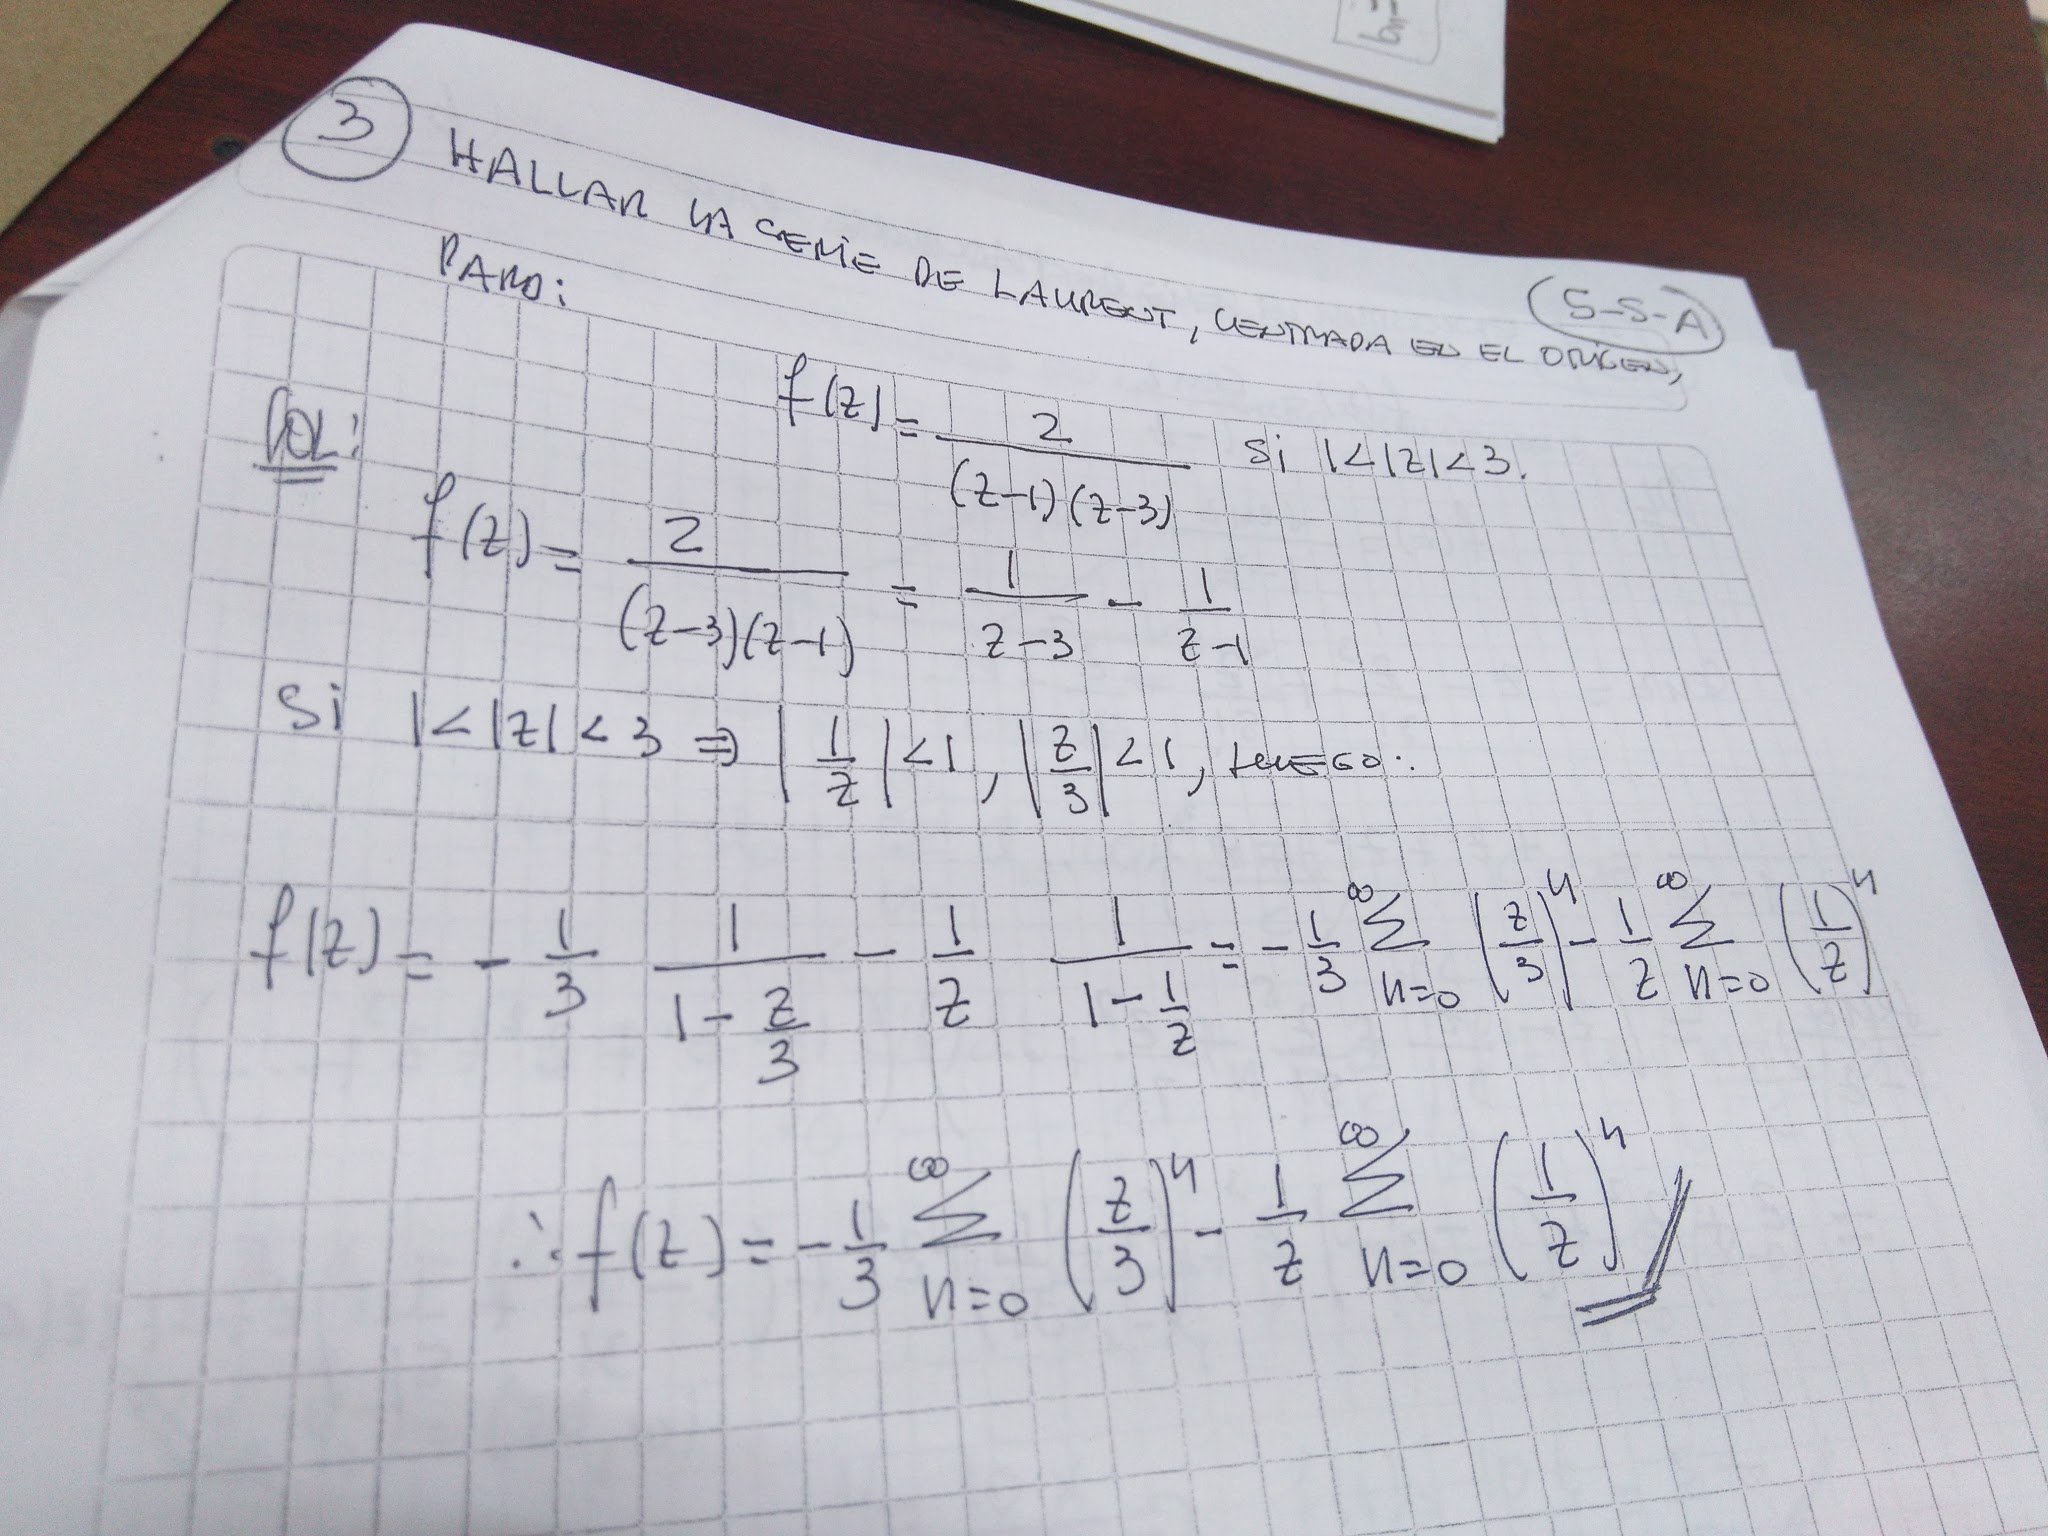 3 HALLAR LA SERIE DE LAURENT, CENTRADA EN EL ORIGEN,
S-S-A
PARA:
f(z) = 2/((z-1)(z-3)) si 1<|z|<3.
SOL:
f(z) = 2/((z-3)(z-1)) = 1/(z-3) - 1/(z-1)
Si 1<|z|<3 ⇒ |1/z|<1, |z/3|<1, LUEGO:
f(z) = - 1/3 1/(1-z/3) - 1/z 1/(1-1/z) = - 1/3 ∞∑n=0 (z/3)^n - 1/z ∞∑n=0 (1/z)^n
∴ f(z) = - 1/3 ∞∑n=0 (z/3)^n - 1/z ∞∑n=0 (1/z)^n